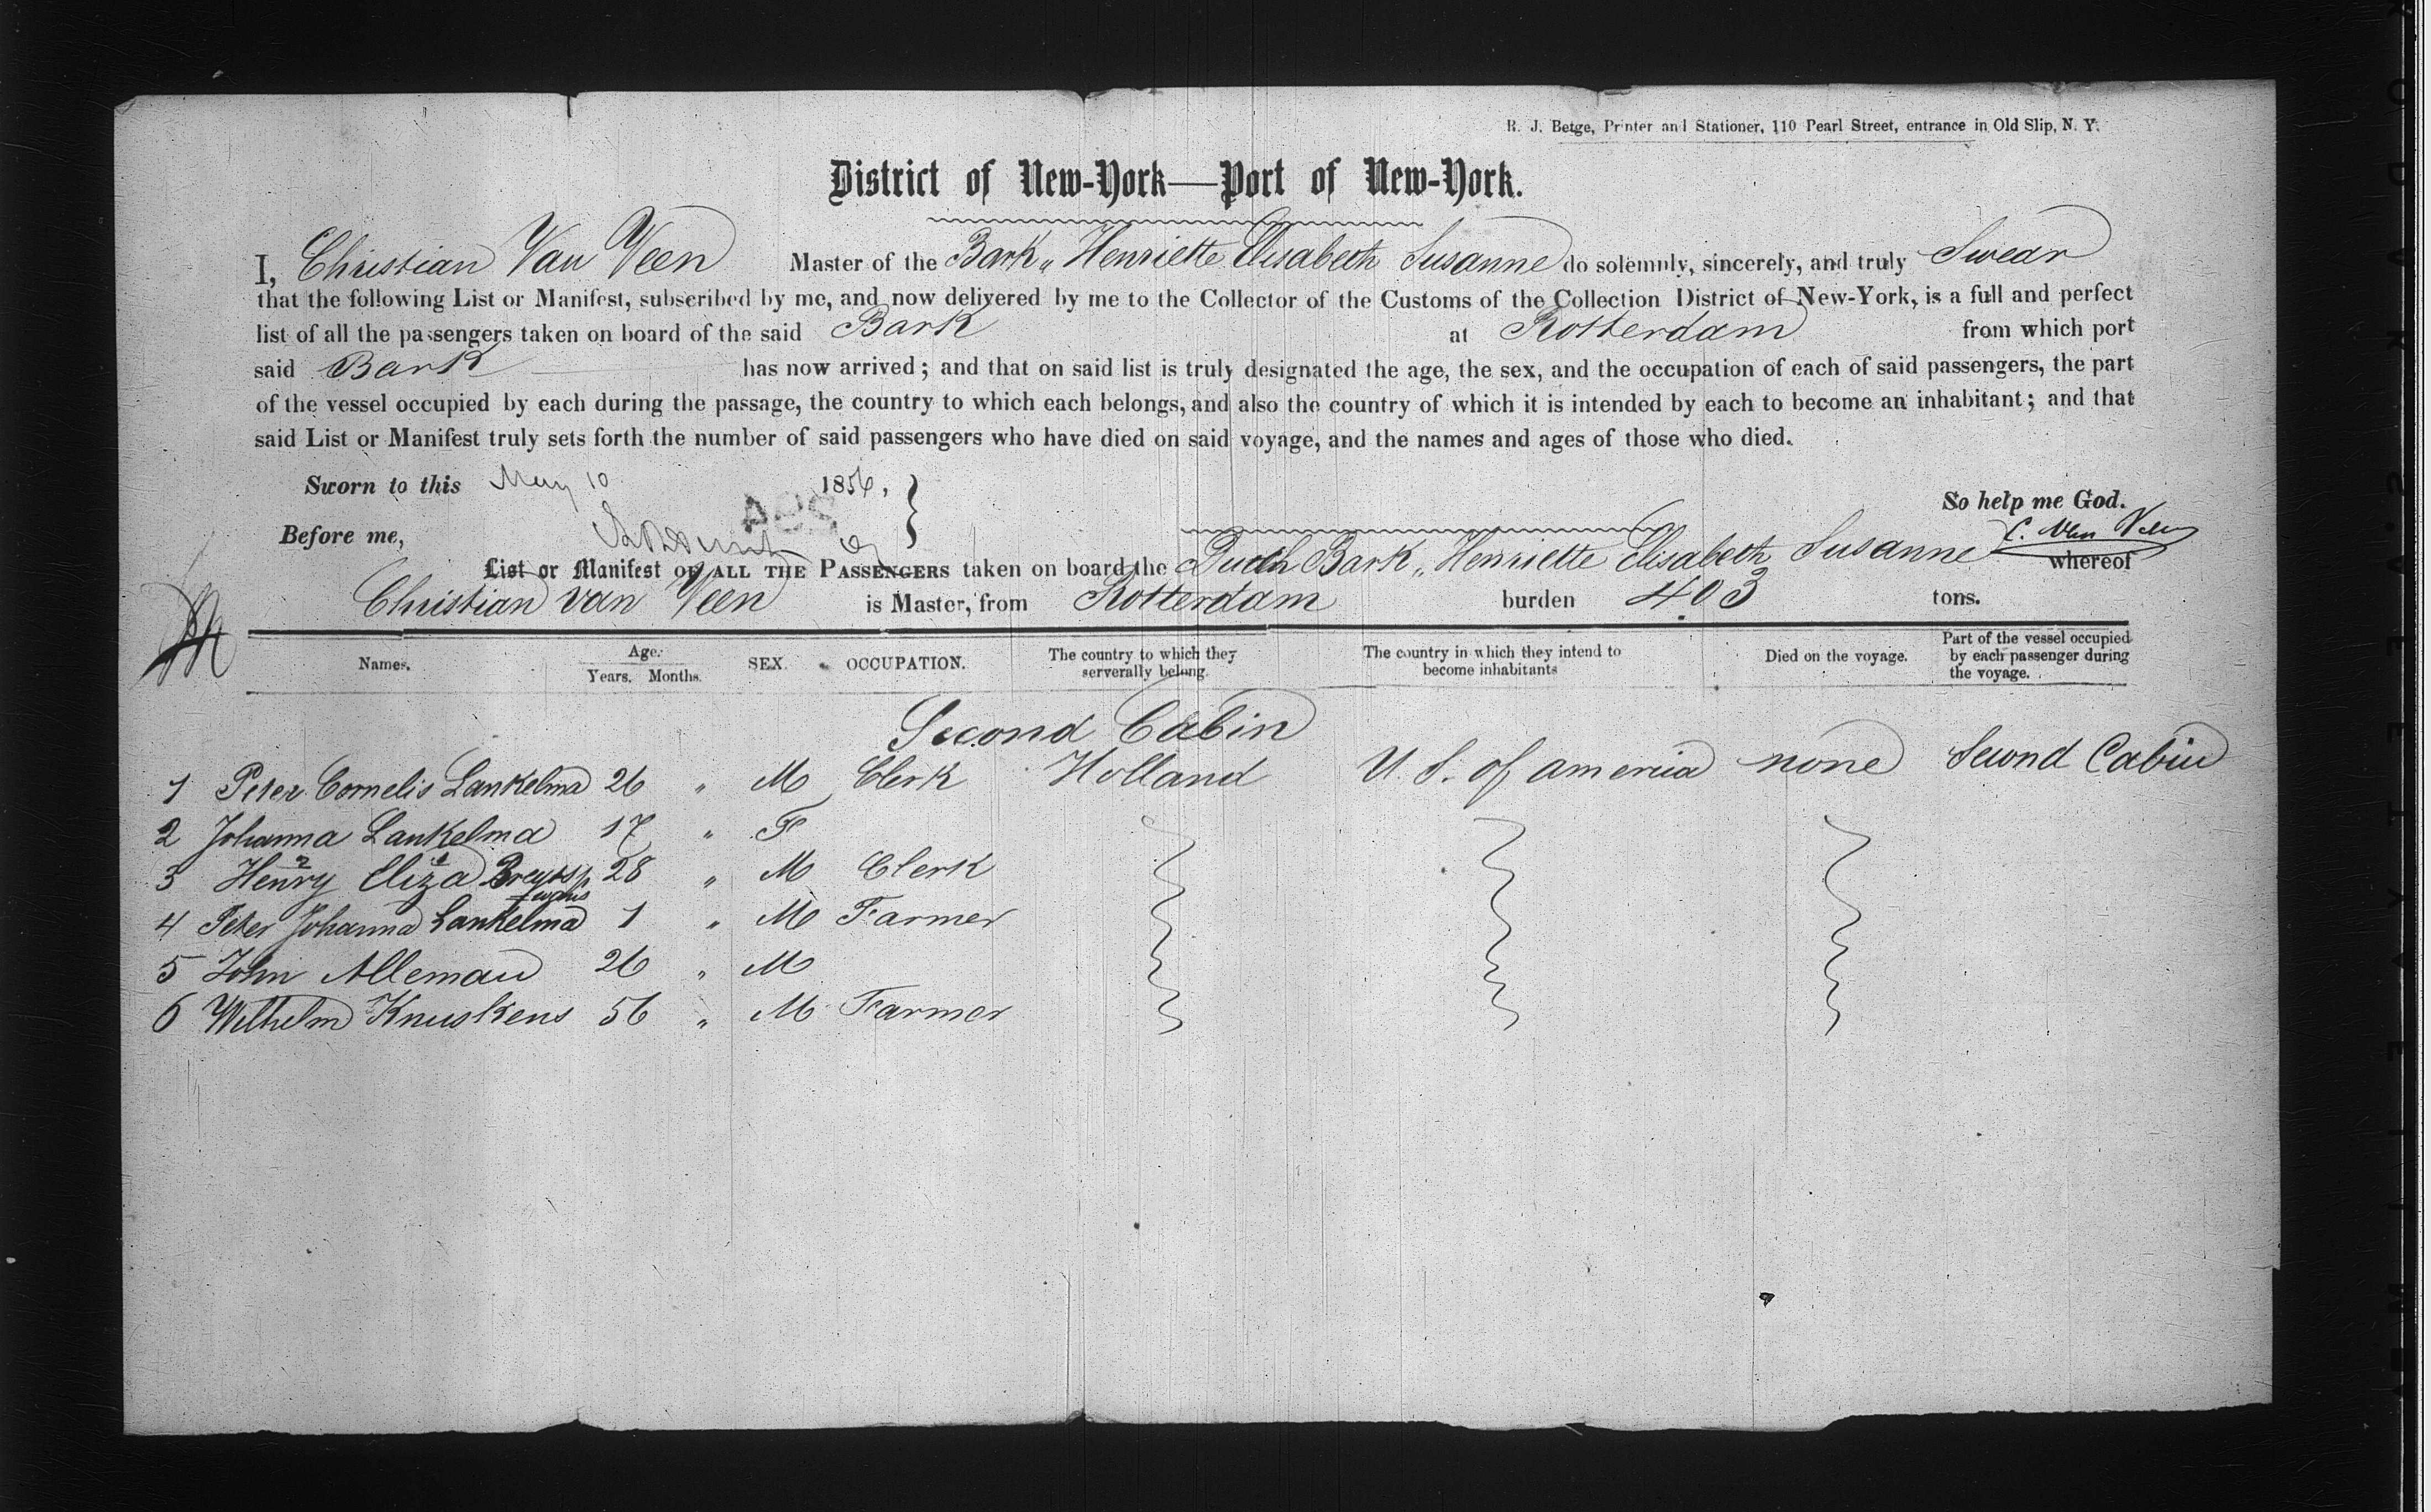 R. J. Betge, Printer and Stationer, 110 Pearl Street, entrance in Old Slip, N. Y.
District of New-York—Port of New-York.
I, Christian Van Veen Master of the Bark „ Henriette Elisabeth Susanne do solemnly, sincerely, and truly Swear
that the following List or Manifest, subscribed by me, and now delivered by me to the Collector of the Customs of the Collection District of New-York, is a full and perfect
list of all the passengers taken on board of the said Bark at Rotterdam from which port
said Bark has now arrived; and that on said list is truly designated the age, the sex, and the occupation of each of said passengers, the part
of the vessel occupied by each during the passage, the country to which each belongs, and also the country of which it is intended by each to become an inhabitant; and that
said List or Manifest truly sets forth the number of said passengers who have died on said voyage, and the names and ages of those who died.
Sworn to this May 10 1856,
So help me God.
Before me,
C. Van Veen
List or Manifest OF ALL THE PASSENGERS taken on board the Dutch Bark „ Henriette Elisabeth Susanne whereof
Christian van Veen is Master, from Rotterdam burden 403 tons.
Names. Age. Years. Months. SEX. OCCUPATION. The country to which they serverally belong. The country in which they intend to become inhabitants Died on the voyage. Part of the vessel occupied by each passenger during the voyage.
Second Cabin
1 Peter Cornelis Lankelma 26 „ M Clerk Holland U. S. of america none Second Cabin
2 Johanna Lankelma 17 „ F
3 Henry Eliza 28 „ M Clerk
4 Peter Johanna Lankelma 1 „ M Farmer
5 John Alleman 26 „ M
6 Wilhelm Knuskens 56 „ M Farmer